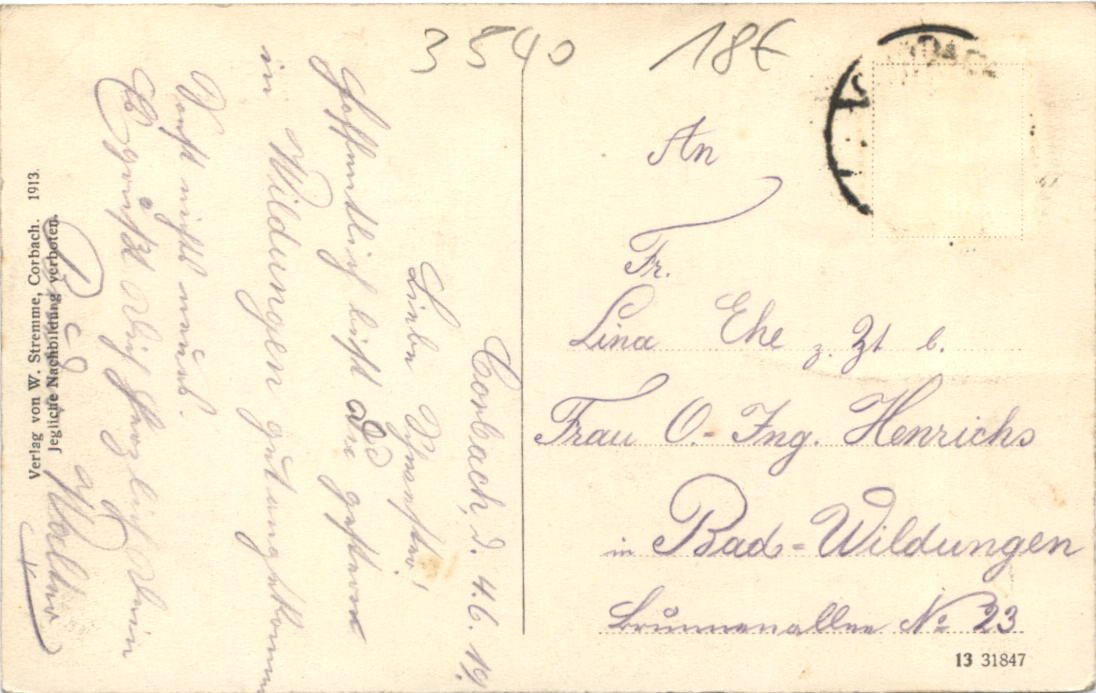 3540
18€
Corbach, d. 4.6.19.
Liebe Schwester!
Hoffentlich bist Du gestern
in Wildungen gut angekommen
Sonst nichts neues.
Es grüßt Dich herzlich Dein
Walter
An
Fr.
Lina Ehe z. Zt b.
Frau O.-Ing. Henrichs
in Bad-Wildungen
Brunnenallee № 23
Verlag von W. Stremme, Corbach. 1913.
Jegliche Nachbildung verboten.
13 31847